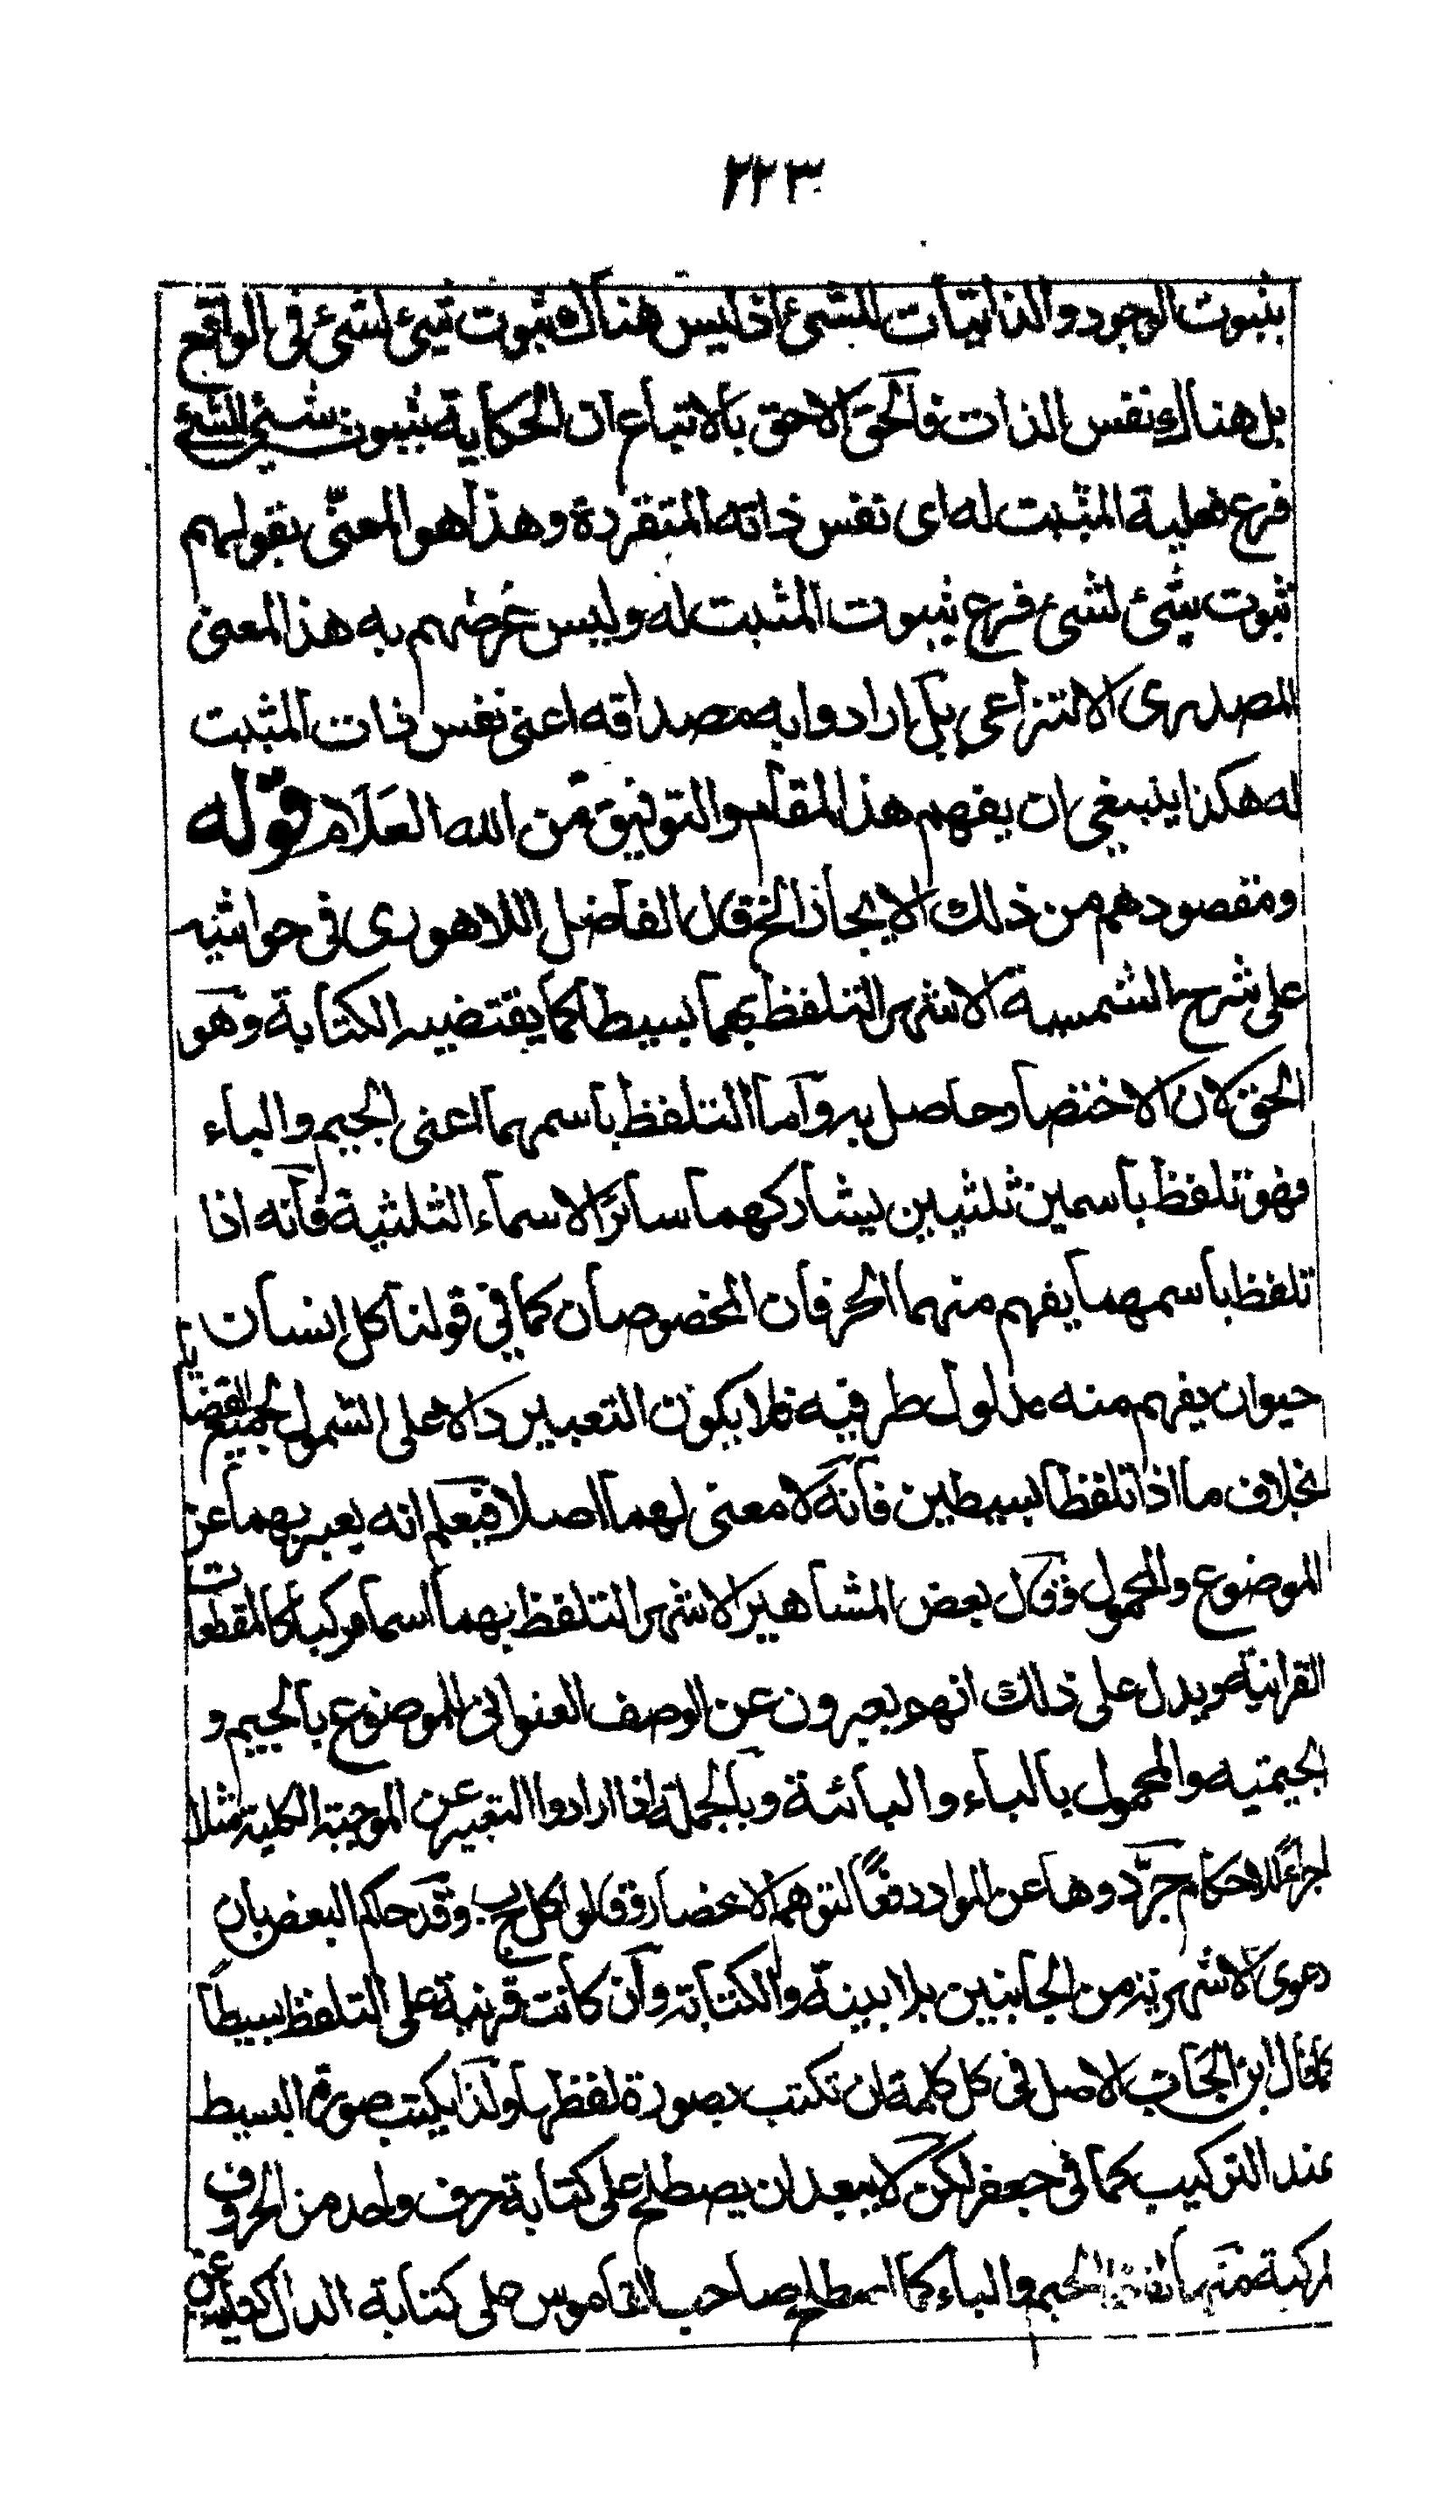 ٢٢٣
بثبوت الوجود والذاتيات للشئ اذ ليس هناك ثبوت شئ لشئ فى الواقع
بل هناك نفس الذات فالحق الاحق بالاتباع ان الحكاية بثبوت شئ لشئ
فرع فعلية المثبت له اى نفس ذاته المتقررة وهذا هو المعنى بقولهم
ثبوت شئ لشئ فرع ثبوت المثبت له وليس غرضهم به هذا المعنى
المصدرى الانتزاعى بل ارادوا به مصداقه اعنى نفس ذات المثبت
له هكذا ينبغى ان يفهم هذا المقام والتوفيق من الله العلام قوله
ومقصودهم من ذلك الايجاز الخ قال الفاضل اللاهورى فى حواشيه
على شرح الشمسية الاشهر التلفظ بهما بسيطا كما يقتضيه الكتابة وهو
الحق لان الاختصار حاصل به واما التلفظ باسمهما اعنى الجيم والباء
فهو تلفظ باسمين ثلثيين يشاركهما سائر الاسماء الثلثية فانه اذا
تلفظ باسمهما يفهم منهما الحرفان المخصوصان كما فى قولنا كل انسان
حيوان يفهم منه مدلول طرفيه فلا يكون التعبير دالا على الشمول لجميع القضايا
بخلاف ما اذا تلفظا بسيطين فانه لا معنى لهما اصلا فيعلم انه يعبر بهما عن
الموضوع والمحمول وقال بعض المشاهير الاشهر التلفظ بهما اسما مركبا كالمقطعات
القرانية ويدل على ذلك انهم يعبرون عن الوصف العنوانى للموضوع بالجيم و
الجيمية والمحمول بالباء والبائية وبالجملة اذا ارادوا التعبير عن الموجبة الكلية مثلا
اجراءً للاحكام جرّدوها عن المواد دفعًا لتوهم الانحصار وقالوا كل ج ب وقد حاكم البعض بان
دعوى الاشهرية من الجانبين بلا بينة والكتابة وان كانت قرينة على التلفظ بسيطاً
كما قال ابن الحاجب الاصل فى كل كلمة ان تكتب بصورة لفظها ولذا يكتب صورة البسيط
عند التركيب كما فى جعفر لكن لا يبعد ان يصطلح على كتابة حرف واحد من الحروف
المركبة منها لفظ الجيم والباء كما اصطلح صاحب القاموس على كتابة الدال عن